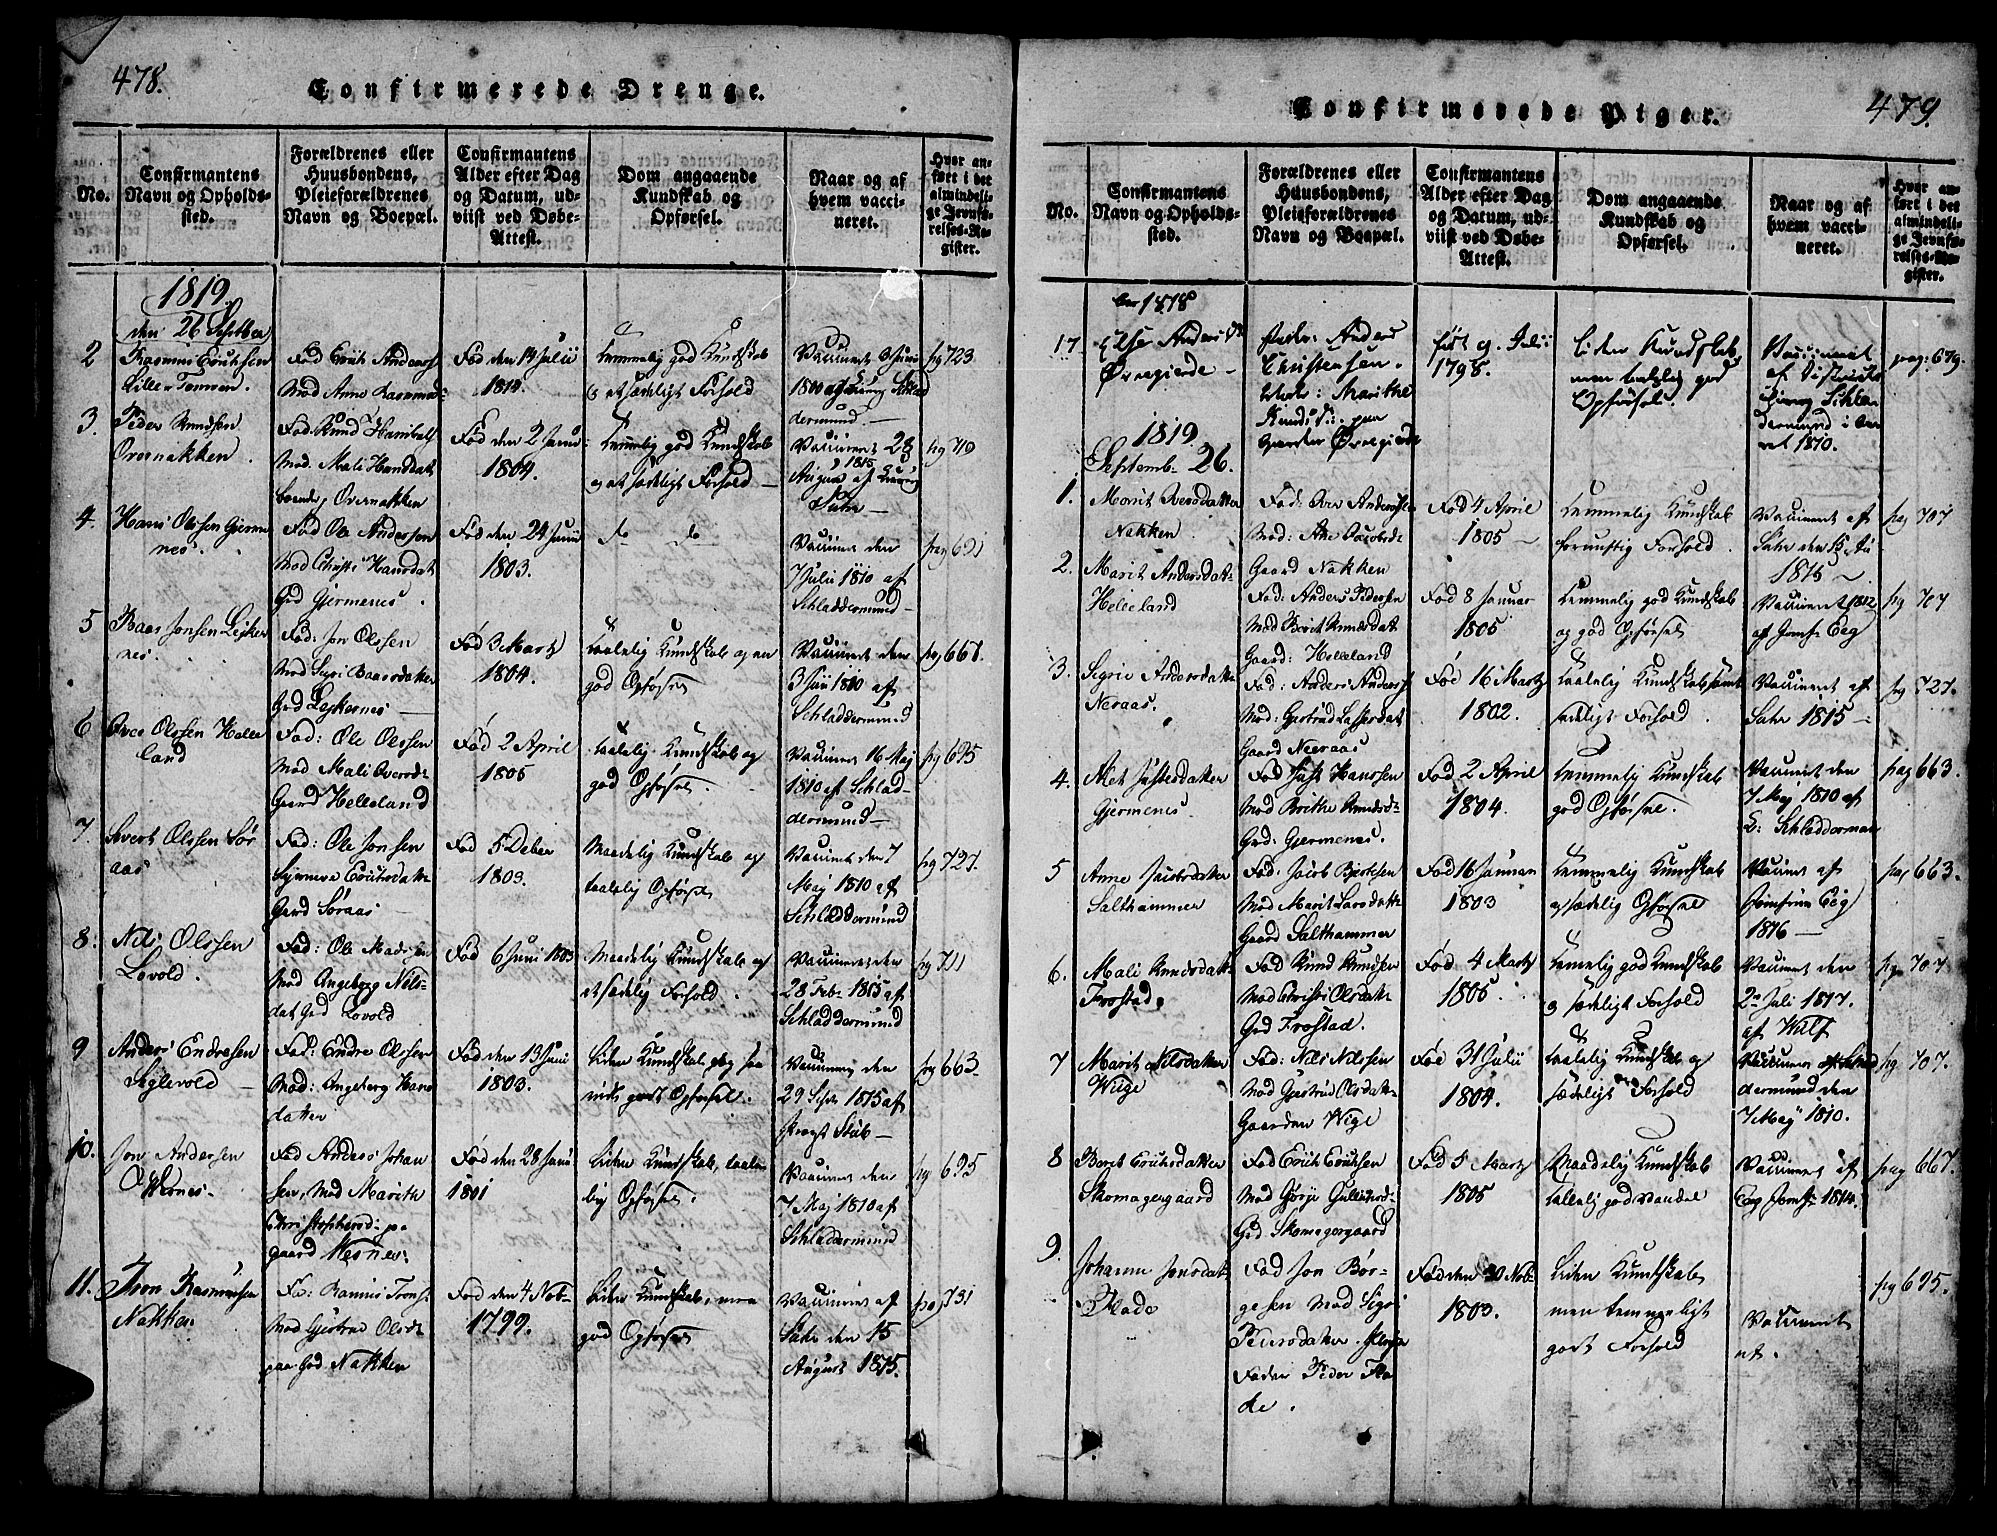 478.
Confirmerede Drenge.
No.
Confirmantens
Navn og Opholds-
sted.
Forældrenes eller
Huusbondens,
Pleieforældrenes
Navn og Boepæl.
Confirmantens
Alder efter Dag
og Datum, ud-
viist ved Døbe-
Attest.
Dom angaaende
Kundskab og
Opførsel.
Naar og af
hvem vacci-
neret.
Hvor an-
ført i det
almindeli-
ge Jevnfø-
relses-Re-
gister.
1819
den 26 Septber
2
Rasmus Erichsen
Lille Tomren.
Fad Erich Anders
Mod Anne Rasmusd
Fød den 14 Julii
1804
temmelig god Kundskab
og et sædeligt Forhold
pag 723
3.
Peder Knudsen
Overnakken.
Fad. Knud
Mod. Mali Hansdatt
boende Overnakken
Fød den 2 Juni
1804.
temmelig god Kundskab
og et sædeligt Forhold
Vaccineret 28
August 1815 af
Sahr
pg 719
4.
Hans Olsen Gjerme
nes.
Fad Ole Andersen
Mod Christi Hansdat
Grd Gjermenes.
Fød den 24 Junii
1803.
do do
Vaccinert den
7 Julii 1810 af
Schladdermund
pag 691
5
Baar Jonsen Lejker
nes.
Fad: Jon Olssen
Mod Sigri Baarsdatter
Grd Lejkernes
Fød 3 Martz
1804.
taalelig Kundskab og en
god Opførsel
Vaccineret den
3 Juii 1810 af
Schladdermund
pag 667.
6
Over Olssen Helle
land
Fad: Ole Olssen
Mod Mali Oversd
Gaard Helleland
Fød 2 April
1805
taalelig Kundskab og
god Opførsel.
Vaccineret 16 Maj
1810 af Schlad-
dermund
pag 695
7.
Sivert Olssen Sør
aas
Fad: Ole Jonsen
Erichsdatt
Gard Søraas
Fød 5 Deber
1803.
Maadelig Kundskab og
taalelig Opførsel
Vaccineret den 7
Maj 1810 af
Schladdermund
pg 727.
8.
Nils Olssen
Lovold.
Fad: Ole Madssen
Mod Ingeborg Nils-
dat Grd Lovold
Fød 6 Juni 1803
Maadelig Kundskab og
et sædelig Forhold.
Vaccineret den
28 Febr 1815 af
Schladdermund
pg 711
9
Anders Endresen
Siglevold
Fad: Endre Olssen
Mod: Ingeborg Hans
datter
Fød den 13 Juni
1803.
Liden Kundskab og saa
vidt godt Opførsel.
Vaccineret den
29 Septr 1815 af
Provst Stub
pag 663.
10.
Jon Andersen
Wernes.
Fad Anders Johan
sen, Mod Marith
Christophersd: paa
gaard Nesnes.
Fød den 28 Juni
1801
Liden Kundskab, taale
lig Opførsel.
Vaccineret den
7 Maj 1810 af
Schladdermund
pg 695
11.
Iver Rasmussen
Nakken
Fad: Rasmus
Mod Gjertrud Olsdt
paa Grd Nakken
Fød den 4 Nob-
1799.
Liden Kundskab, men
god Opførsel
Vaccineret af
Sahr den 15
August 1815.
pag 731
479.
Confirmerede Piger.
No.
Confirmantens
Navn og Opholds-
sted.
Forældrenes eller
Huusbondens,
Pleieforældrenes
Navn og Boepæl.
Confirmantens
Alder efter Dag
og Datum, ud-
viist ved Døbe-
Attest.
Dom angaaende
Kundskab og
Opførsel.
Naar og af
hvem vacci-
neret.
Hvor an-
ført i det
almindeli-
ge Jevnfø-
relses-Re-
gister.
1818
17
Else Anders
Øvregierde
Fader: Anders
Christensen.
Moder: Marithe
Knudsd: paa
gaarden Øvregierde
født 9 Julii
1798.
Liden Kundskab
men temlig god
Opførsel.
Vaccineret
af Districts
Schlad
dermund i Aa
ret 1810.
pag: 679.
1819
Septemb. 26.
1.
Marit Oversdatter
Nakken.
Fad: Over
Mod: Ane Jacobsd
Gaard Nakken
Fød 4 April
1805
temmelig Kundskab
fornuftig Forhold.
Vaccineret af
Sahr den 15
1815
pag 707
2.
Marit Andersdatt
Helleland
Fad: Anders Pedersen
Mod Berit Knudsdat
Gaard: Helleland
Fød 8 Januar
1805
temmelig god Kundskab
og god Opførsel
Vaccineret 1812
af Jomfr Eeg
pg 707
3.
Sigrie Andersdatt
Neraas.
Fad: Anders Anders
Mod: Gjertrud Lassesdat
Gaard Neeraas
Fød 16 Martz
1802.
taalelig Kundskab samt
sædeligt Forhold.
Vaccineret af
Sahr 1815
pg 727.
4.
Gjermenes.
Fad Hanssen
Mod Brithe Knudsd
Grd: Gjermenes.
Fød 2 April
1804.
temmelig Kundskab
god Opførsel.
Vaccineret den
7 Maj 1810 af
Schladdermun
pag 663.
5
Anne Jacobsdatter
Salthammer
Fad. Jacob
Mod Marit Larsdatt
Gaard Salthammer
Fød 16 Januar
1803
temmelig Kundskab
og sædelig Opførsel
Vaccineret af
Jomfru Eeg
1816
pag 663.
6.
Mali Knudsdatt
Frostad.
Fad Knud Knudsen
Mod Christi Olsdatt
Grd Frostad.
Fød 4 Martz
1805.
temmelig god Kundskab
og sædeligt Forhold
Vaccineret den
2 Juli 1817.
af Wulf
pag 707
7
Marit Nilsdatter
Wiige
Fad: Nils Nilssen
Mod Gjertrud Olsdatt
Gaarden Wige
Fød 31 Julii
1804.
taalelig Kundskab og
sædeligt Forhold
Vaccineret af Schlad
dermund den
7 Maij 1810.
pg. 707.
8
Berit Erichsdatter
Skomagergaard
Fad Erich Erichsen
Mod
Grd Skomagergaard
Fød 5 Martz
1805
Maadelig Kundskab
taalelig god Vandel
Vaccineret af
Eeg Jomfr 1814.
pag 667.
9.
Johanne Jonsdatt
Flade
Fad Jon Bør-
gesen Mod Sigri
Pedersdatter
Fader Peder Fla
de.
Fød den 30 Nob-
1803.
Liden Kundskab
men temmeligt
godt Forhold
Vaccineret
pg 695.